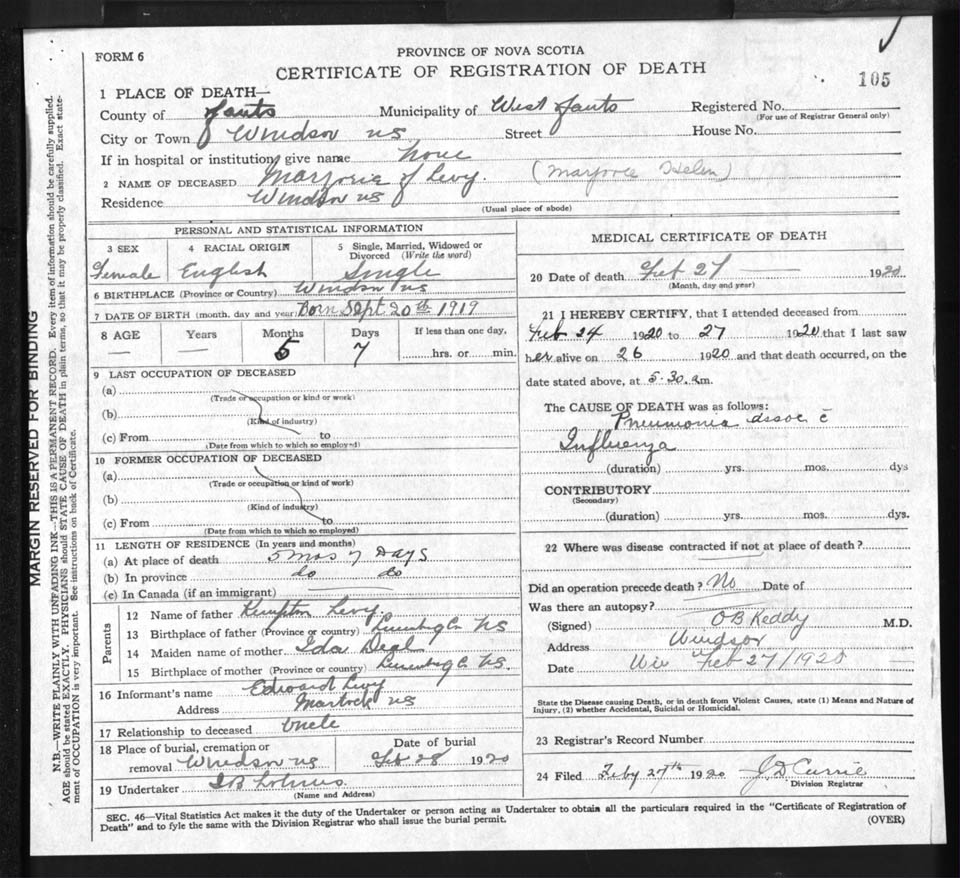 FORM 6
PROVINCE OF NOVA SCOTIA
CERTIFICATE OF REGISTRATION OF DEATH
105
1 PLACE OF DEATH—
County of Hants Municipality of West Hants Registered No.
(For use of Registrar General only)
City or Town Windsor NS Street House No.
If in hospital or institution, give name None
2 NAME OF DECEASED Marjorie H Levy. (Marjorie Helen)
Residence Windsor NS
(Usual place of abode)
PERSONAL AND STATISTICAL INFORMATION
3 SEX 4 RACIAL ORIGIN 5 Single, Married, Widowed or Divorced (Write the word)
Female English Single
6 BIRTHPLACE (Province or Country) Windsor NS
7 DATE OF BIRTH (month, day and year) Born Sept 20th 1919
8 AGE Years Months Days If less than one day,
— — 5 7 hrs. or min.
9 LAST OCCUPATION OF DECEASED
(a)
(Trade or occupation or kind or work)
(b)
(Kind of industry)
(c) From to
(Date from which to which so employed)
10 FORMER OCCUPATION OF DECEASED
(a)
(Trade or occupation or kind of work)
(b)
(Kind of industry)
(c) From to
(Date from which to which so employed)
11 LENGTH OF RESIDENCE (In years and months)
(a) At place of death 5 Mos 7 Days
(b) In province do do
(c) In Canada (if an immigrant)
Parents
12 Name of father Kempton Levy.
13 Birthplace of father (Province or country) Lunenburg Co NS
14 Maiden name of mother Ida Deal
15 Birthplace of mother (Province or country) Lunenburg Co NS.
16 Informant's name Edward Levy
Address Martock NS
17 Relationship to deceased Uncle
18 Place of burial, cremation or removal Windsor NS
Date of burial
Feb 28 1920
19 Undertaker
(Name and Address)
MEDICAL CERTIFICATE OF DEATH
20 Date of death Feb 27 — 1920
(Month, day and year)
21 I HEREBY CERTIFY, that I attended deceased from
Feb 24 1920 to 27 1920 that I last saw
her alive on 26 1920 and that death occurred, on the
date stated above, at 5.30 a.m.
The CAUSE OF DEATH was as follows:
Pneumonia assoc c̄
Influenza
(duration) yrs. mos. dys
CONTRIBUTORY
(Secondary)
(duration) yrs. mos. dys.
22 Where was disease contracted if not at place of death?
Did an operation precede death? No Date of
Was there an autopsy?
(Signed) O B Keddy M.D.
Address Windsor
Date Feb 27/1920
State the Disease causing Death, or in death from Violent Causes, state (1) Means and Nature of
Injury, (2) whether Accidental, Suicidal or Homicidal.
23 Registrar's Record Number
24 Filed Feby 27th 1920 J D Currie
Division Registrar
SEC. 46—Vital Statistics Act makes it the duty of the Undertaker or person acting as Undertaker to obtain all the particulars required in the "Certificate of Registration of
Death" and to fyle the same with the Division Registrar who shall issue the burial permit.
(OVER)
MARGIN RESERVED FOR BINDING
N.B.—WRITE PLAINLY WITH UNFADING INK—THIS IS A PERMANENT RECORD. Every item of information should be carefully supplied.
AGE should be stated EXACTLY. PHYSICIANS should STATE CAUSE OF DEATH in plain terms, so that it may be properly classified. Exact state-
ment of OCCUPATION is very important. See instructions on back of Certificate.